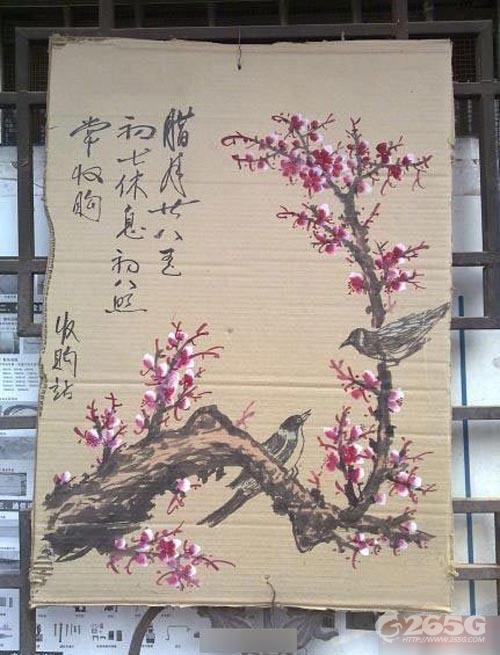 腊月廿八至
初七休息初八照
常收购
收购站
265G
HTTP://WWW.265G.COM